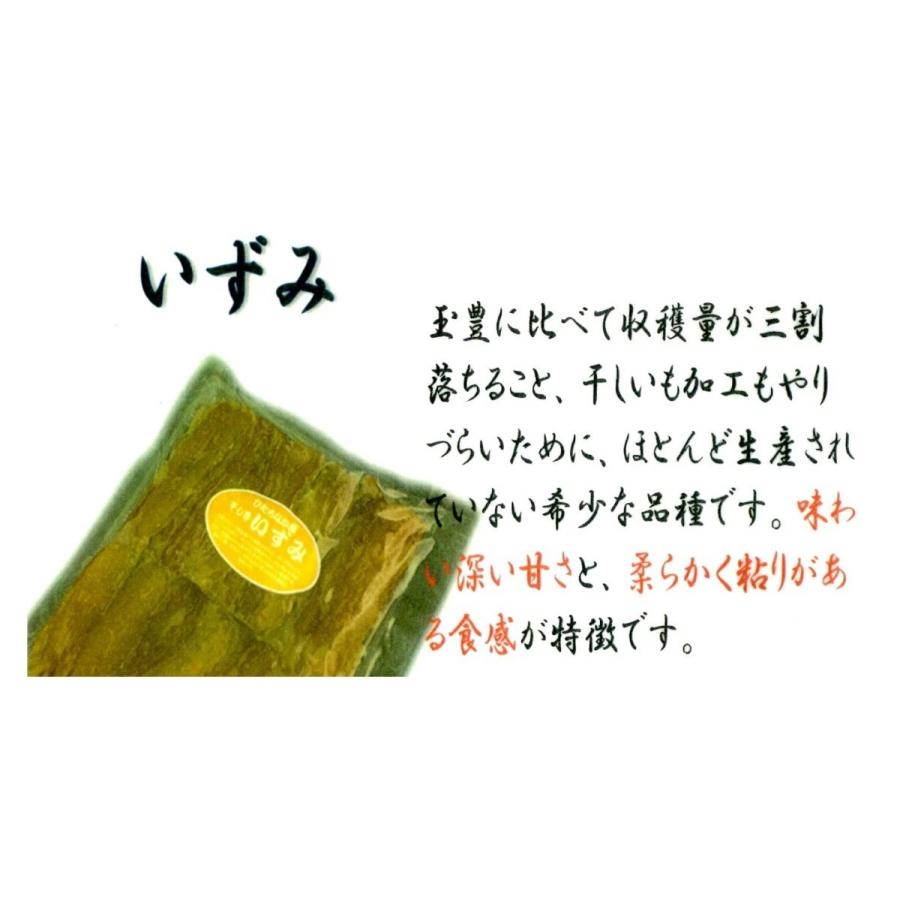 いずみ
玉豊に比べて収穫量が三割
落ちること、干しいも加工もやり
づらいために、ほとんど生産され
ていない希少な品種です。味わ
い深い甘さと、柔らかく粘りがあ
る食感が特徴です。
ひたちなか産
干し芋
いずみ